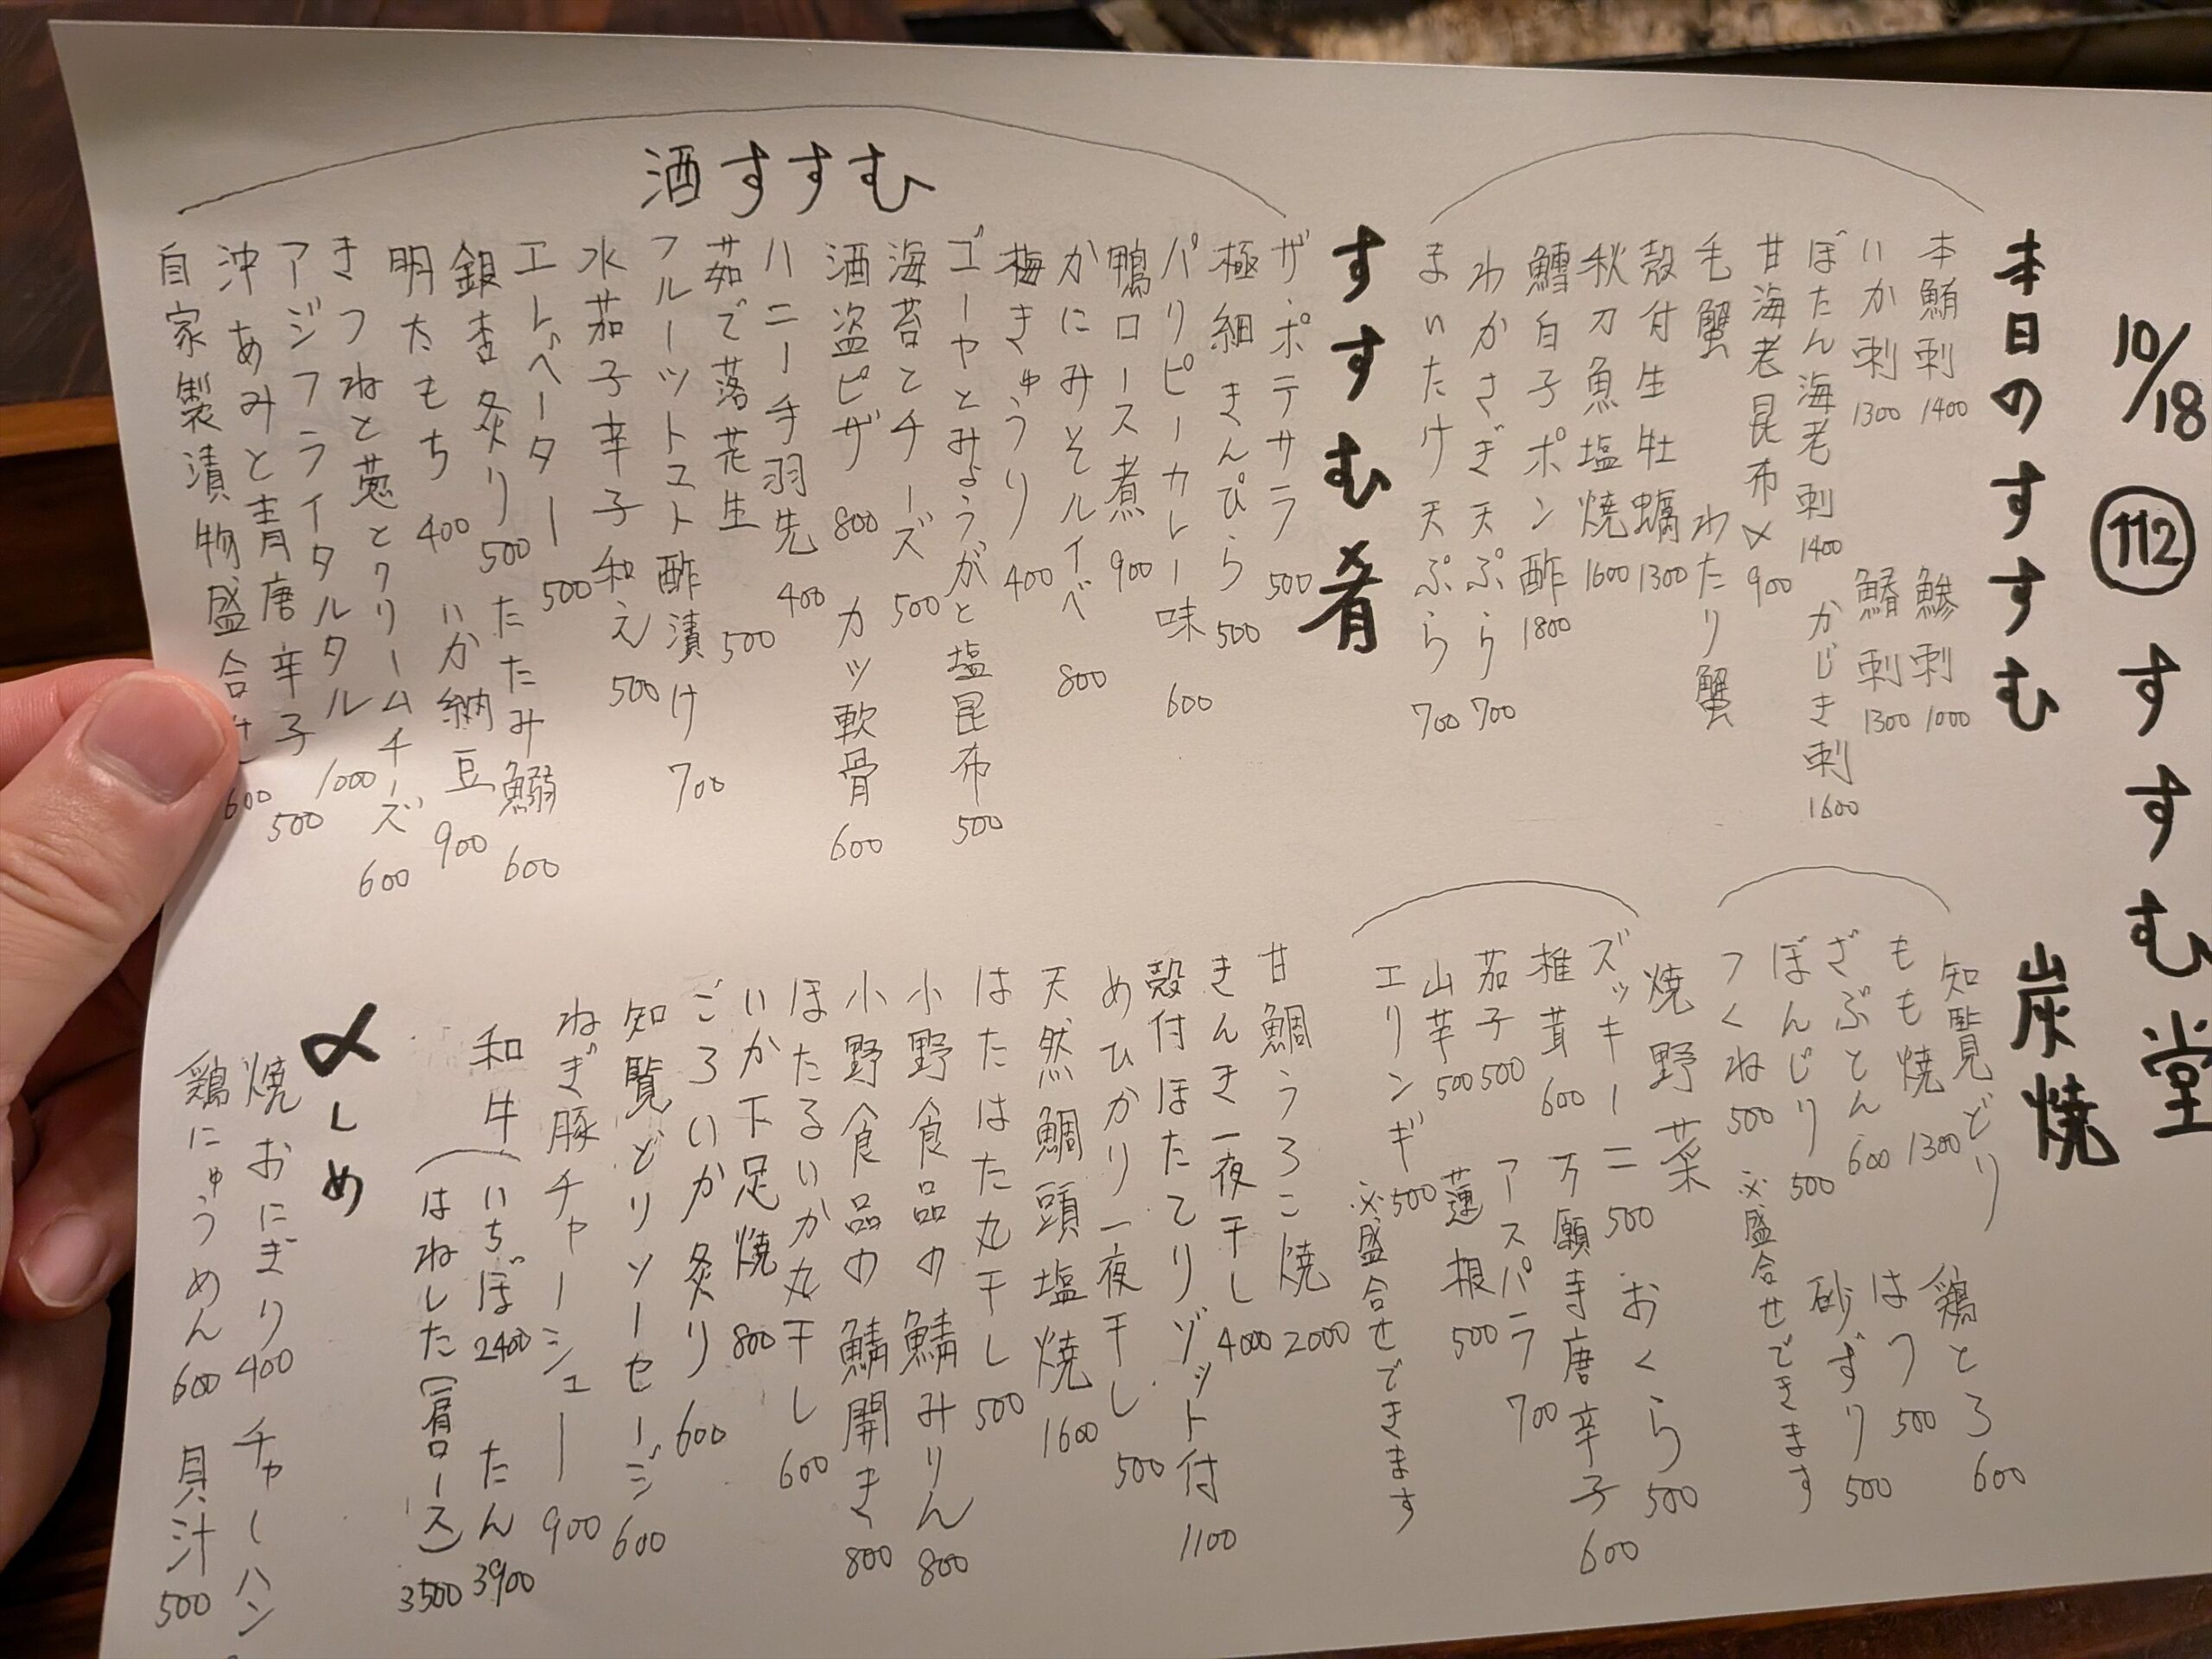 10/18
112 すすむ堂
本日のすすむ
本鮪刺 1400 鯵刺 1000
いか刺 1300 鰆刺 1300
ぼたん海老刺 1400 かじき刺 1600
甘海老昆布〆 900
毛蟹 わたり蟹
殻付生牡蠣 1300
秋刀魚塩焼 1600
鱈白子ポン酢 1800
わかさぎ天ぷら 700
まいたけ天ぷら 700
すすむ肴
酒すすむ
ザ・ポテサラ 500
極細きんぴら 500
パリピーカレー味 600
鴨ロース煮 900
かにみそルイベ 800
梅きゅうり 400
ゴーヤとみょうがと塩昆布 500
海苔とチーズ 500
酒盗ピザ 800 カツ軟骨 600
ハニー手羽先 400
茹で落花生 500
フルーツトマト酢漬け 700
水茄子辛子和え 500
エレベーター 500
銀杏炙り 500 たたみ鰯 600
明太もち 400 いか納豆 900
きつねと葱とクリームチーズ 600
アジフライタルタル 1000
沖あみと青唐辛子 500
自家製漬物盛合せ 600
炭焼
知覧どり 鶏とろ 600
もも焼 1300 はつ 500
ざぶとん 600 砂ずり 500
ぼんじり 500
つくね 500 ※盛合せできます
焼野菜
ズッキーニ 500 おくら 500
椎茸 600 万願寺唐辛子 600
茄子 500 アスパラ 700
山芋 500 蓮根 500
エリンギ 500 ※盛合せできます
甘鯛うろこ焼 2000
きんき一夜干し 4000
殻付ほたてリゾット付 1100
めひかり一夜干し 500
天然鯛頭塩焼 1600
はたはた丸干し 500
小野食品の鯖みりん 800
小野食品の鯖開き 800
ほたるいか丸干し 600
いか下足焼 800
ごろいか炙り 600
知覧どりソーセージ 600
ねぎ豚チャーシュー 900
和牛 いちぼ 2400 たん 3900
はねした(肩ロース) 3500
〆しめ
焼おにぎり 400 チャーハン
鶏にゅうめん 600 貝汁 500